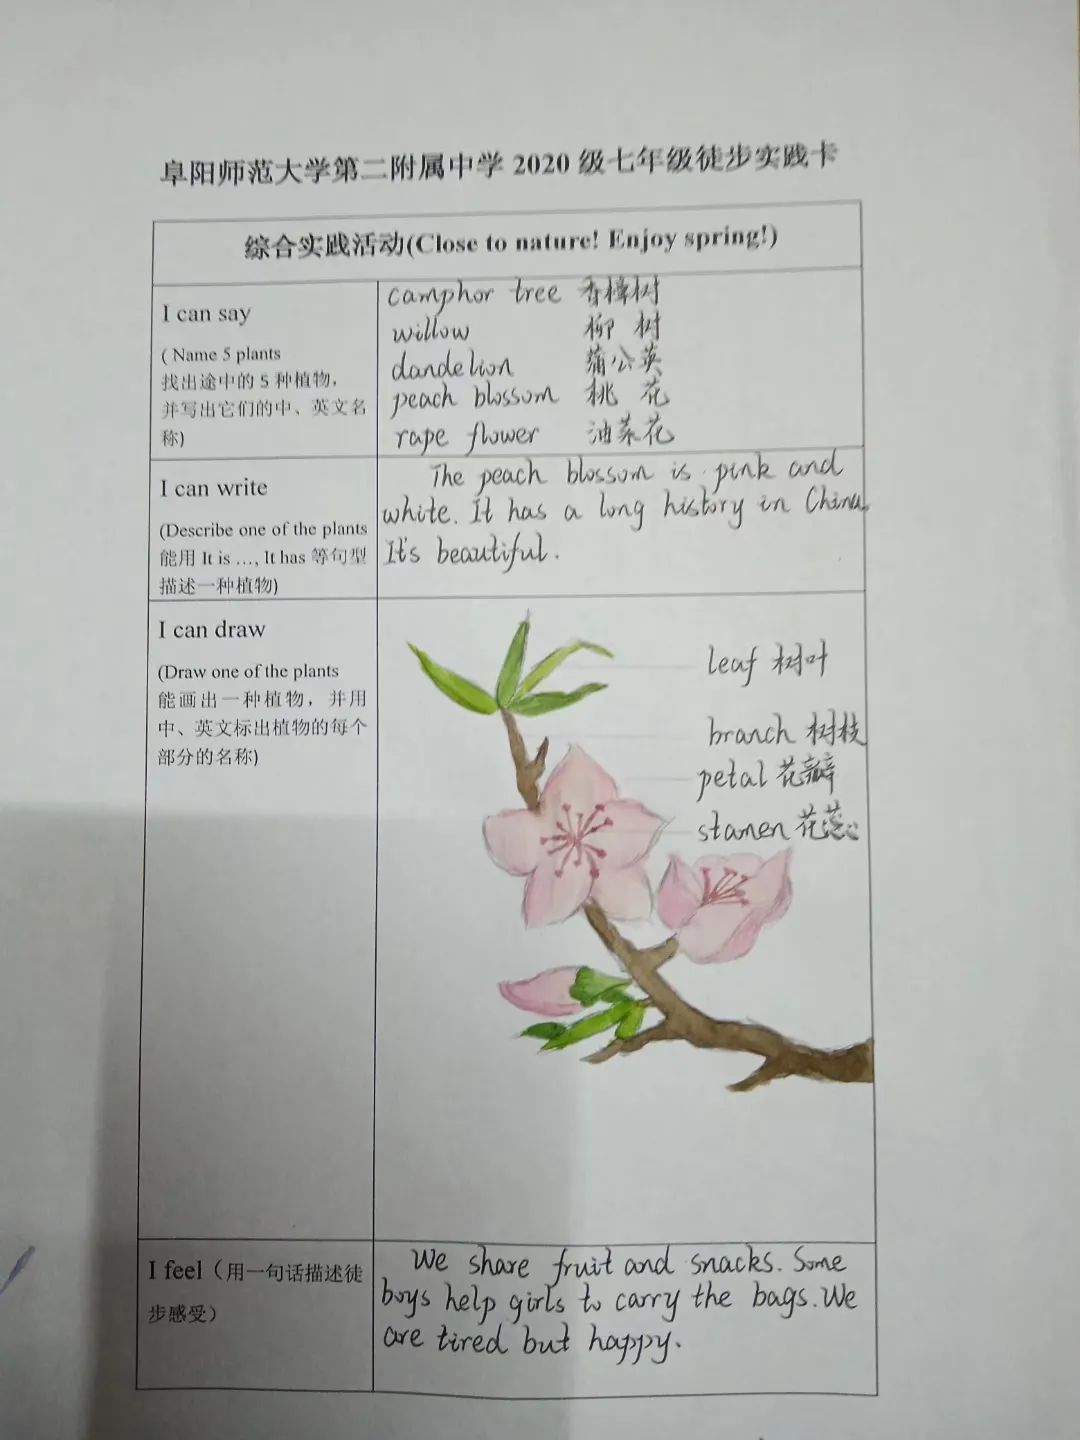 阜阳师范大学第二附属中学 2020 级七年级徒步实践卡
综合实践活动(Close to nature! Enjoy spring!)
I can say
( Name 5 plants
找出途中的 5 种植物，
并写出它们的中、英文名
称)
camphor tree 香樟树
willow 柳 树
dandelion 蒲公英
peach blossom 桃 花
rape flower 油菜花
I can write
(Describe one of the plants
能用 It is …, It has 等句型
描述一种植物)
The peach blossom is pink and
white. It has a long history in China.
It's beautiful.
I can draw
(Draw one of the plants
能画出一种植物，并用
中、英文标出植物的每个
部分的名称)
leaf 树叶
branch 树枝
petal 花瓣
stamen 花蕊
I feel（用一句话描述徒
步感受）
We share fruit and snacks. Some
boys help girls to carry the bags. We
are tired but happy.